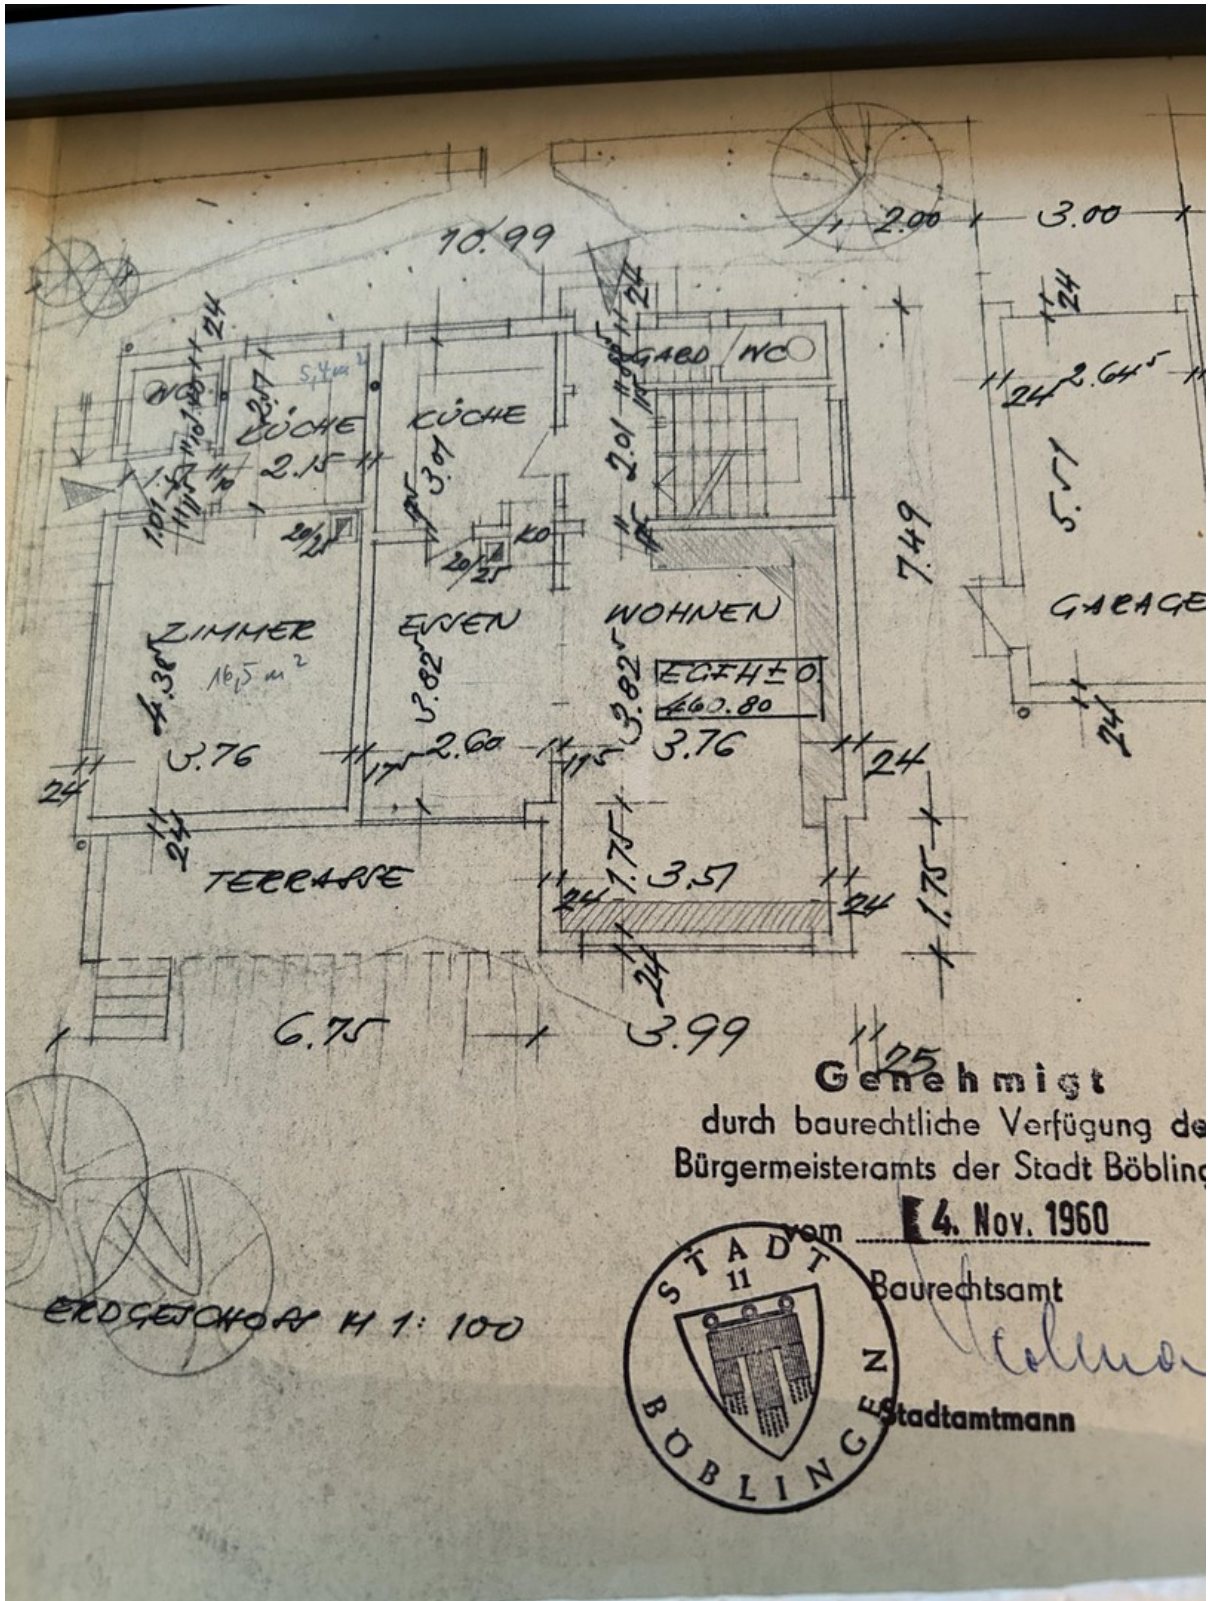 10.99
2.00
3.00
24
24
24
GARD
WC
WC
5,4 m²
2.51
KÜCHE
2.15
KÜCHE
3.01
2.01
24 2.64⁵
5.51
20/25
20/25
KO
7.49
ZIMMER
16,5 m²
4.38⁵
3.76
ESSEN
3.82⁵
2.60
WOHNEN
3.82⁵
EGFH ± 0
460.80
3.76
GARAGE
24
17⁵
11⁵
24
24
24
TERRASSE
1.75
3.51
24
24
1.75
24
6.75
3.99
25
Genehmigt
durch baurechtliche Verfügung de
Bürgermeisteramts der Stadt Böbling
vom 4. Nov. 1960
Baurechtsamt
Stadtamtmann
STADT
11
BÖBLINGEN
ERDGESCHOSS M 1:100